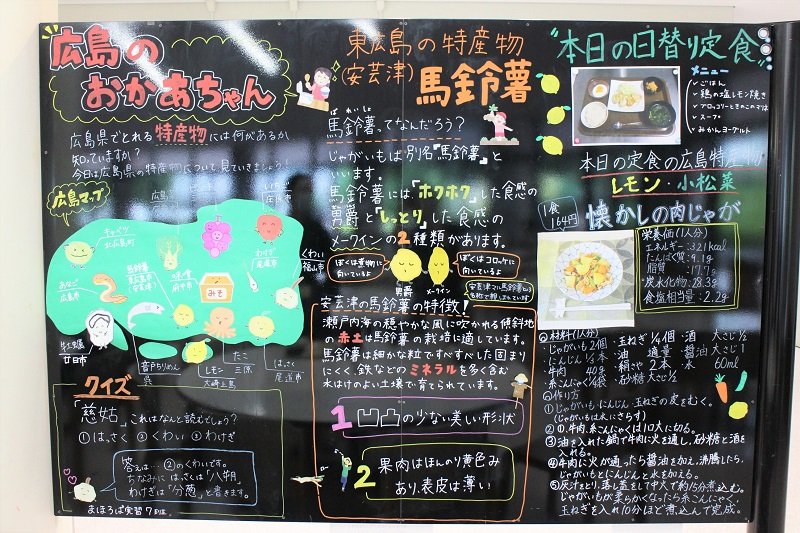 広島の
おかあちゃん
広島県でとれる特産物には何があるか
知っていますか?
今日は広島県の特産物について見ていきましょう!
広島マップ
キャベツ
北広島町
わけぎ
尾道市
くわい
福山市
あなご
広島市
馬鈴薯
東広島市
(安芸津)
府中市
みそ
牡蠣
廿日市
音戸ちりめん
呉
レモン
大崎上島
たこ
三原
はっさく
尾道市
クイズ
「慈姑」これはなんと読むでしょう?
①はっさく ②くわい ③わけぎ
答えは… ②のくわいです。
ちなみに はっさくは「八朔」
わけぎは「分葱」と書きます。
まほろば実習7
東広島の特産物
(安芸津)馬鈴薯
ばれいしょ
馬鈴薯ってなんだろう?
じゃがいもは別名『馬鈴薯』と
いいます。
馬鈴薯には、『ホクホク』した食感の
男爵と『しっとり』した食感の
メークインの2種類があります。
ぼくは煮物に
向いているよ
ぼくはコロッケに
向いているよ
男爵
メークイン
安芸津の馬鈴薯の特徴!
瀬戸内海の穏やかな風に吹かれる傾斜地
の赤土は馬鈴薯の栽培に適しています。
馬鈴薯は細かな粒ですべすべした固まり
にくく、鉄などのミネラルを多く含む
水はけのよい土壌で育てられています。
1 凹凸の少ない美しい形状
2 果肉はほんのり黄色み
あり、表皮は薄い
"本日の日替り定食"
メニュー
✓ごはん
✓鶏の塩レモン焼き
✓ブロッコリーときのこのマヨ
✓スープ
✓みかんヨーグルト
本日の定食の広島特産物
レモン・小松菜
1食
164円
懐かしの肉じゃが
栄養価(1人分)
エネルギー:321kcal
たんぱく質:9.1g
脂質 :17.7g
炭水化物:28.3g
食塩相当量:2.2g
◎材料(1人分)
・じゃがいも2個 ・玉ねぎ1/4個 ・酒 大さじ1/2
・にんじん1/4本 ・油 適量 ・醤油 大さじ1
・牛肉 40g ・絹さや2本 ・水 60ml
・糸こんにゃく1/4袋 ・砂糖 大さじ1/2
◎作り方
①じゃがいも・にんじん・玉ねぎの皮をむく。
(じゃがいもは水にさらす)
②①、牛肉、糸こんにゃくは1口大に切る。
③油を入れた鍋で牛肉に火を通し、砂糖と酒を
入れる。
④牛肉に火が通ったら醤油を加え、沸騰したら、
じゃがいもとにんじんと水を加える。
⑤灰汁をとり、落し蓋をして中火で約15分煮込む。
じゃがいもが柔らかくなったら糸こんにゃく、
玉ねぎを入れ10分ほど煮込んで完成。